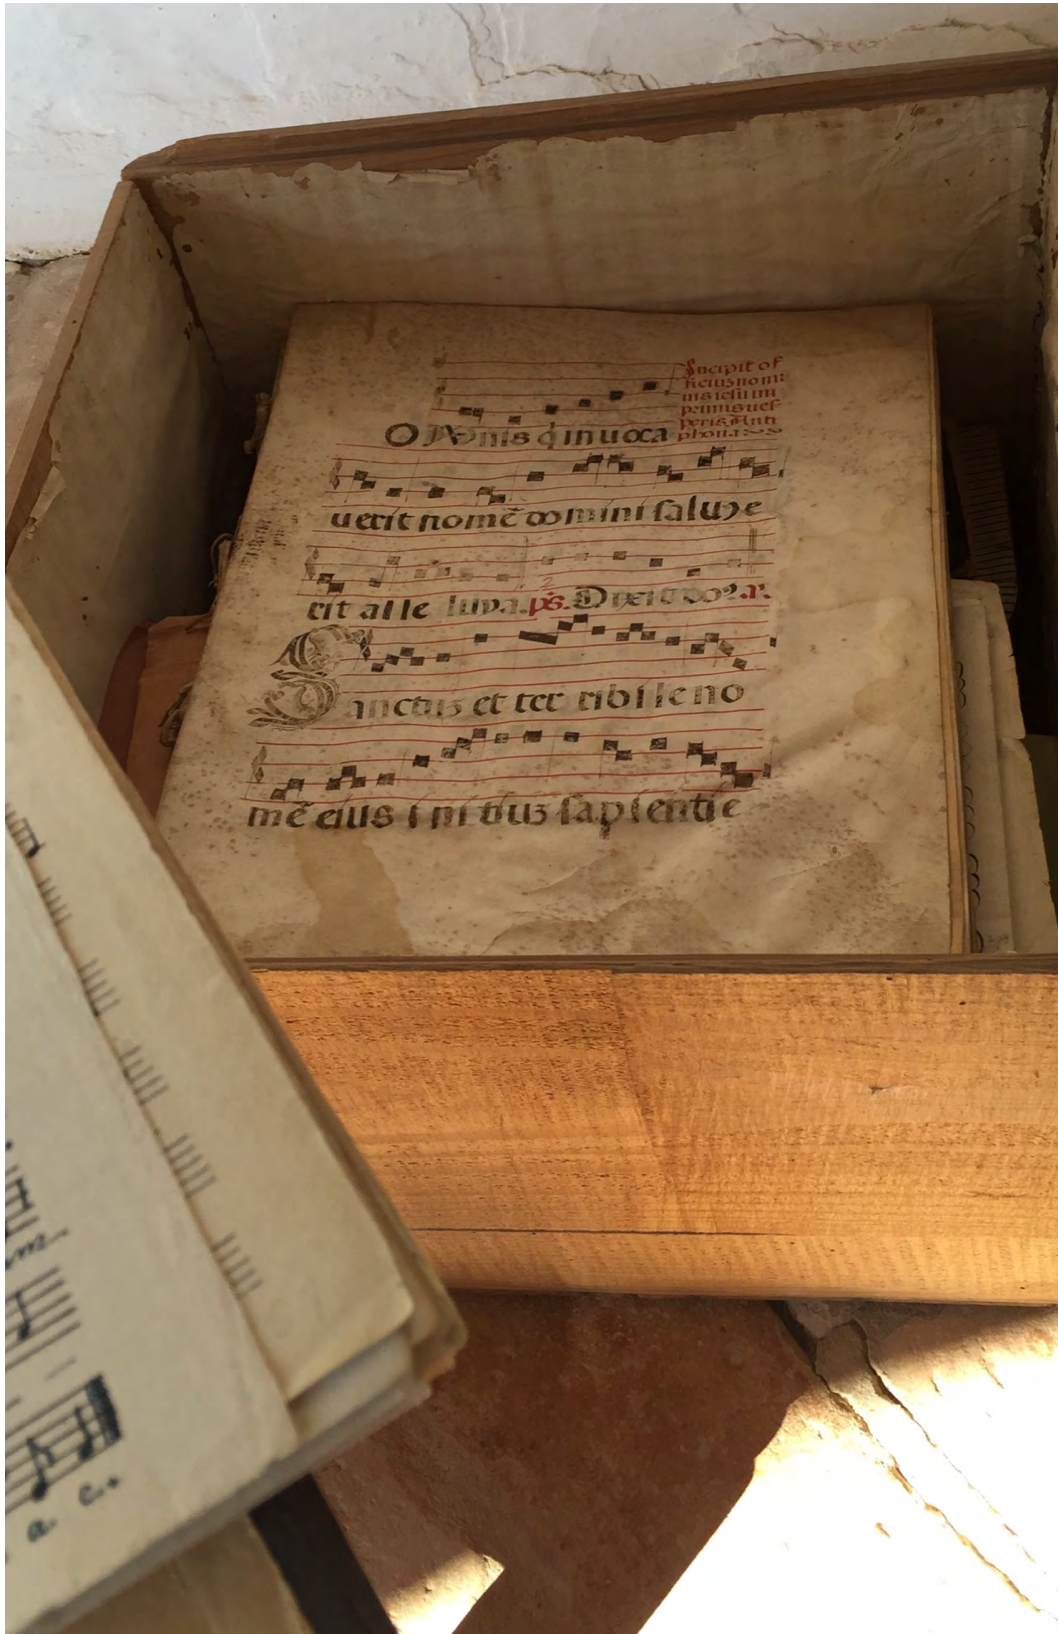 Incipit of
ficiuz nomi
nis iesu in
primis ves
peris Anti
phona
OMnis q̇ inuoca
uerit nomē domini saluꝰ e
rit alle luya. ps. Dixit do? .a.
Sanctus et ter ribile no
mē eius i ni tiuz sapientie
a. c.